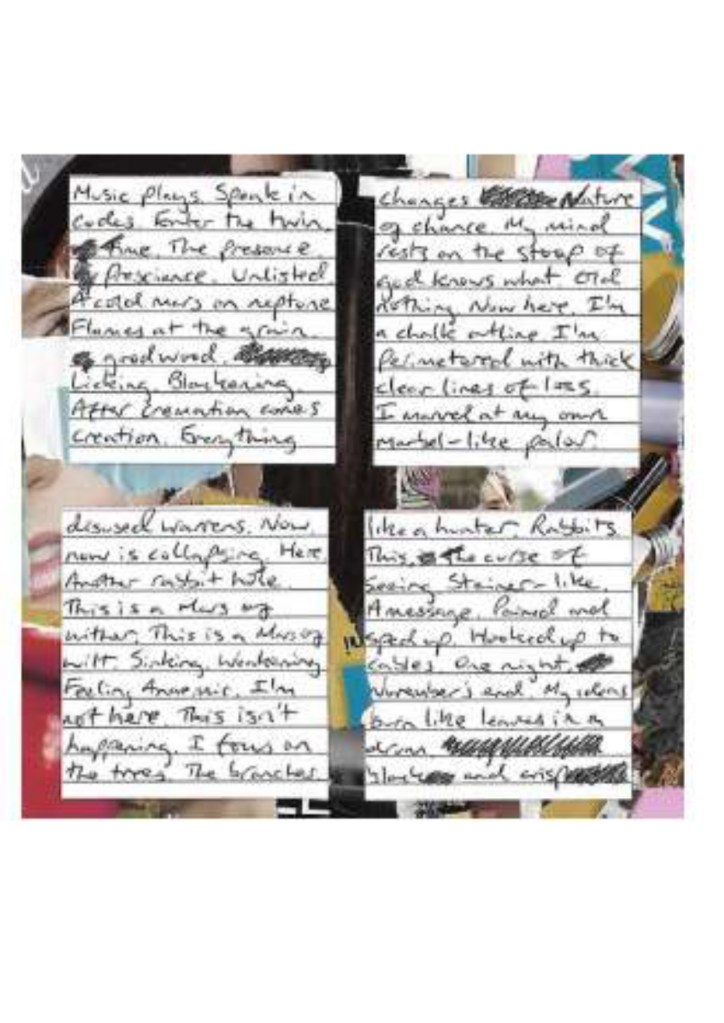 Music plays. Speak in
codes. Enter the twin.
time. The presence
prescience. Unlisted
A cold mars on neptune
Flames at the grain.
good wood.
Licking. Blackening.
After cremation comes
creation. Everything
changes Nature
of chance. My mind
rests on the stoop of
god knows what. Old
nothing. Now here. I'm
a chalk outline I'm
Perimetered with thick
clear lines of loss.
I marvel at my own
marbel-like palor.
disused warrens. Now.
now is collapsing. Here
Another rabbit hole.
This is a Mars my
wither. This is a Mars my
wilt. Sinking. Weakening
Feeling Anaemic. I'm
not here. This isn't
happening. I focus on
the trees. The branches
like a hunter. Rabbits.
This, the curse of
Seeing Steiner-like.
A message. Pained and
sped up. Hooked up to
cables. One night,
November's end. My
burn like leaves in a
drum.
black and crisp